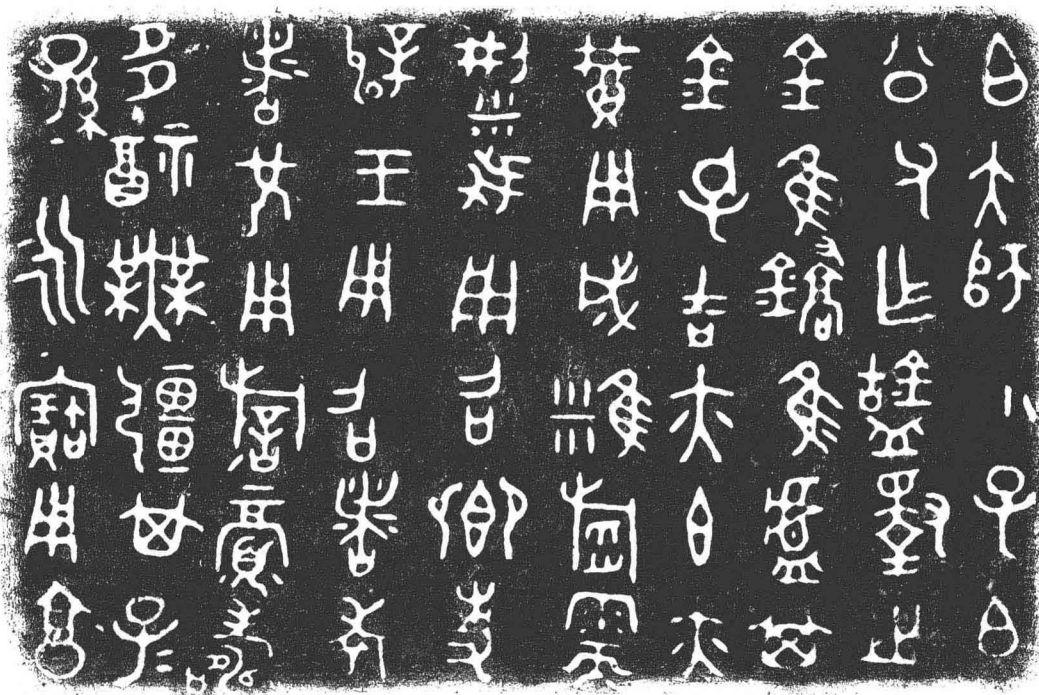 白大師小子白
公父乍𠤳擇之
金隹鐈隹盧其
金孔吉亦玄亦
黃用成䊤稻需
梁我用召卿事
辟王用召者考
者兄用旂眉壽
多福無疆其子
子孫孫永寶用享